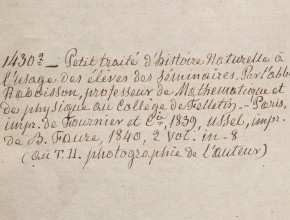 1430a - Petit traité d'histoire Naturelle à
l'usage des élèves des séminaires. Par l'abbé
professeur de Mathématique et
de physique au Collège de Felletin. - Paris,
impr. de Fournier et Cie, 1839, Ussel, impr.
de B. Faure, 1840, 2 vol. in-8
(au T. II. photographie de l'auteur)